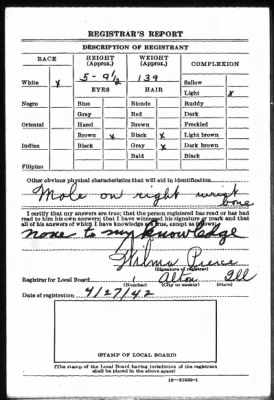 REGISTRAR'S REPORT
DESCRIPTION OF REGISTRANT
RACE HEIGHT (Approx.) WEIGHT (Approx.) COMPLEXION
5-9½ 139
White x Sallow
EYES HAIR Light x
Negro Blue Blonde Ruddy
Gray Red Dark
Oriental Hazel Brown Freckled
Brown x Black x Light brown
Indian Black Gray x Dark brown
Bald Black
Filipino
Other obvious physical characteristics that will aid in identification
Mole on right wrist
bone
I certify that my answers are true; that the person registered has read or has had
read to him his own answers; that I have witnessed his signature or mark and that
all of his answers of which I have knowledge are true, except as follows:
none to my knowledge
Wilma Pierce
(Signature of registrar)
Registrar for Local Board 1 Alton Ill
(Number) (City or county) (State)
Date of registration 4/27/42
(STAMP OF LOCAL BOARD)
(The stamp of the Local Board having jurisdiction of the registrant
shall be placed in the above space)